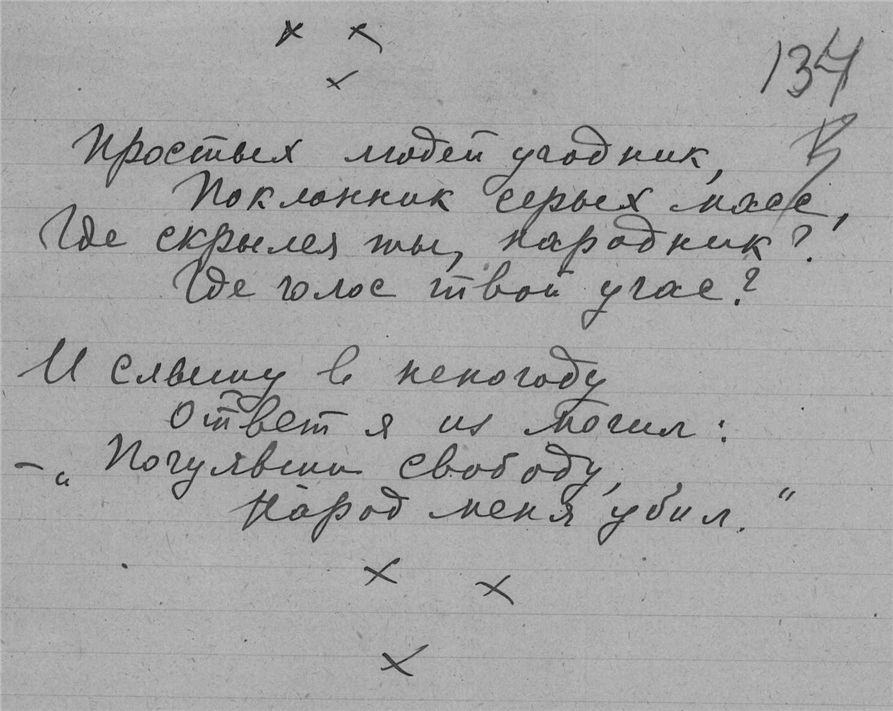 х х
х
137
Простых людей угодник,
Поклонник серых масс,
Где скрылся ты, народник?
Где голос твой угас?
И слышу в непогоду
Ответ я из могил:
– „Почуявши свободу,
Народ меня убил.“
х х
х